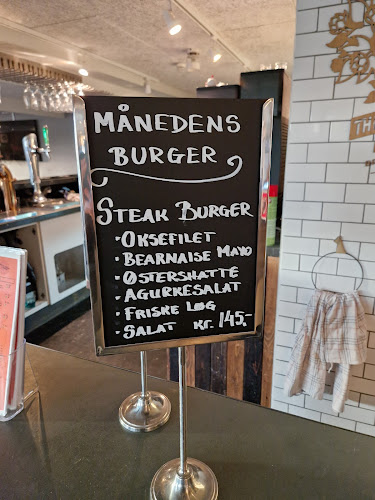 MÅNEDENS
BURGER
STEAK BURGER
· OKSEFILET
· BEARNAISE MAYO
· ØSTERSHATTE
· AGURKESALAT
· FRISKE LØG
· SALAT KR. 145.-